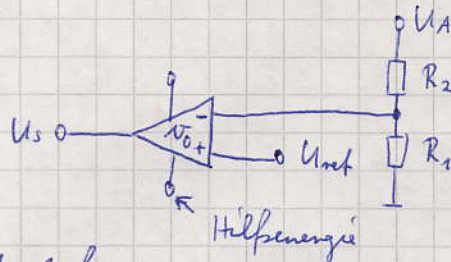 U_A
R_2
-
U_s
v_0
+
U_ref
R_1
Hilfsenergie